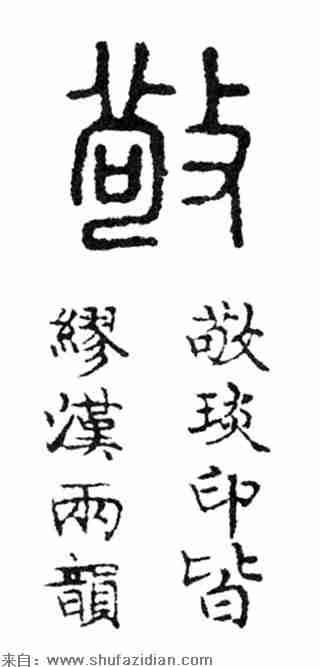 敬
敬琰印皆
繆漢兩韻
来自：www.shufazidian.com